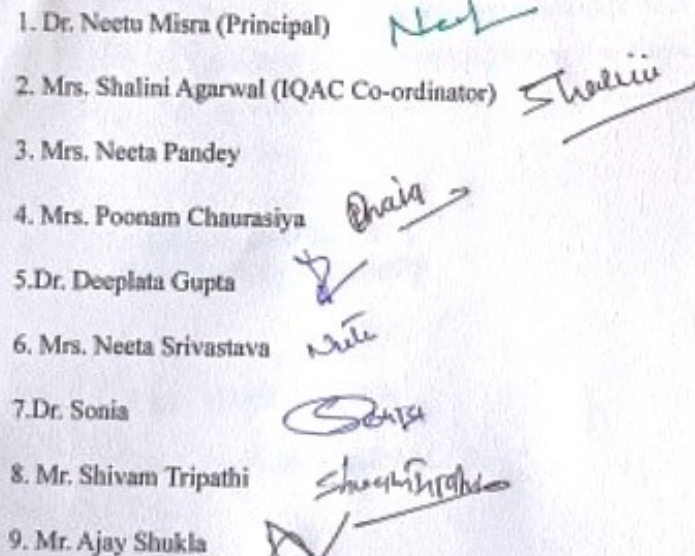 1. Dr. Neetu Misra (Principal)
2. Mrs. Shalini Agarwal (IQAC Co-ordinator) Shalini
3. Mrs. Neeta Pandey
4. Mrs. Poonam Chaurasiya
5.Dr. Deeplata Gupta
6. Mrs. Neeta Srivastava
7.Dr. Sonia
8. Mr. Shivam Tripathi
9. Mr. Ajay Shukla